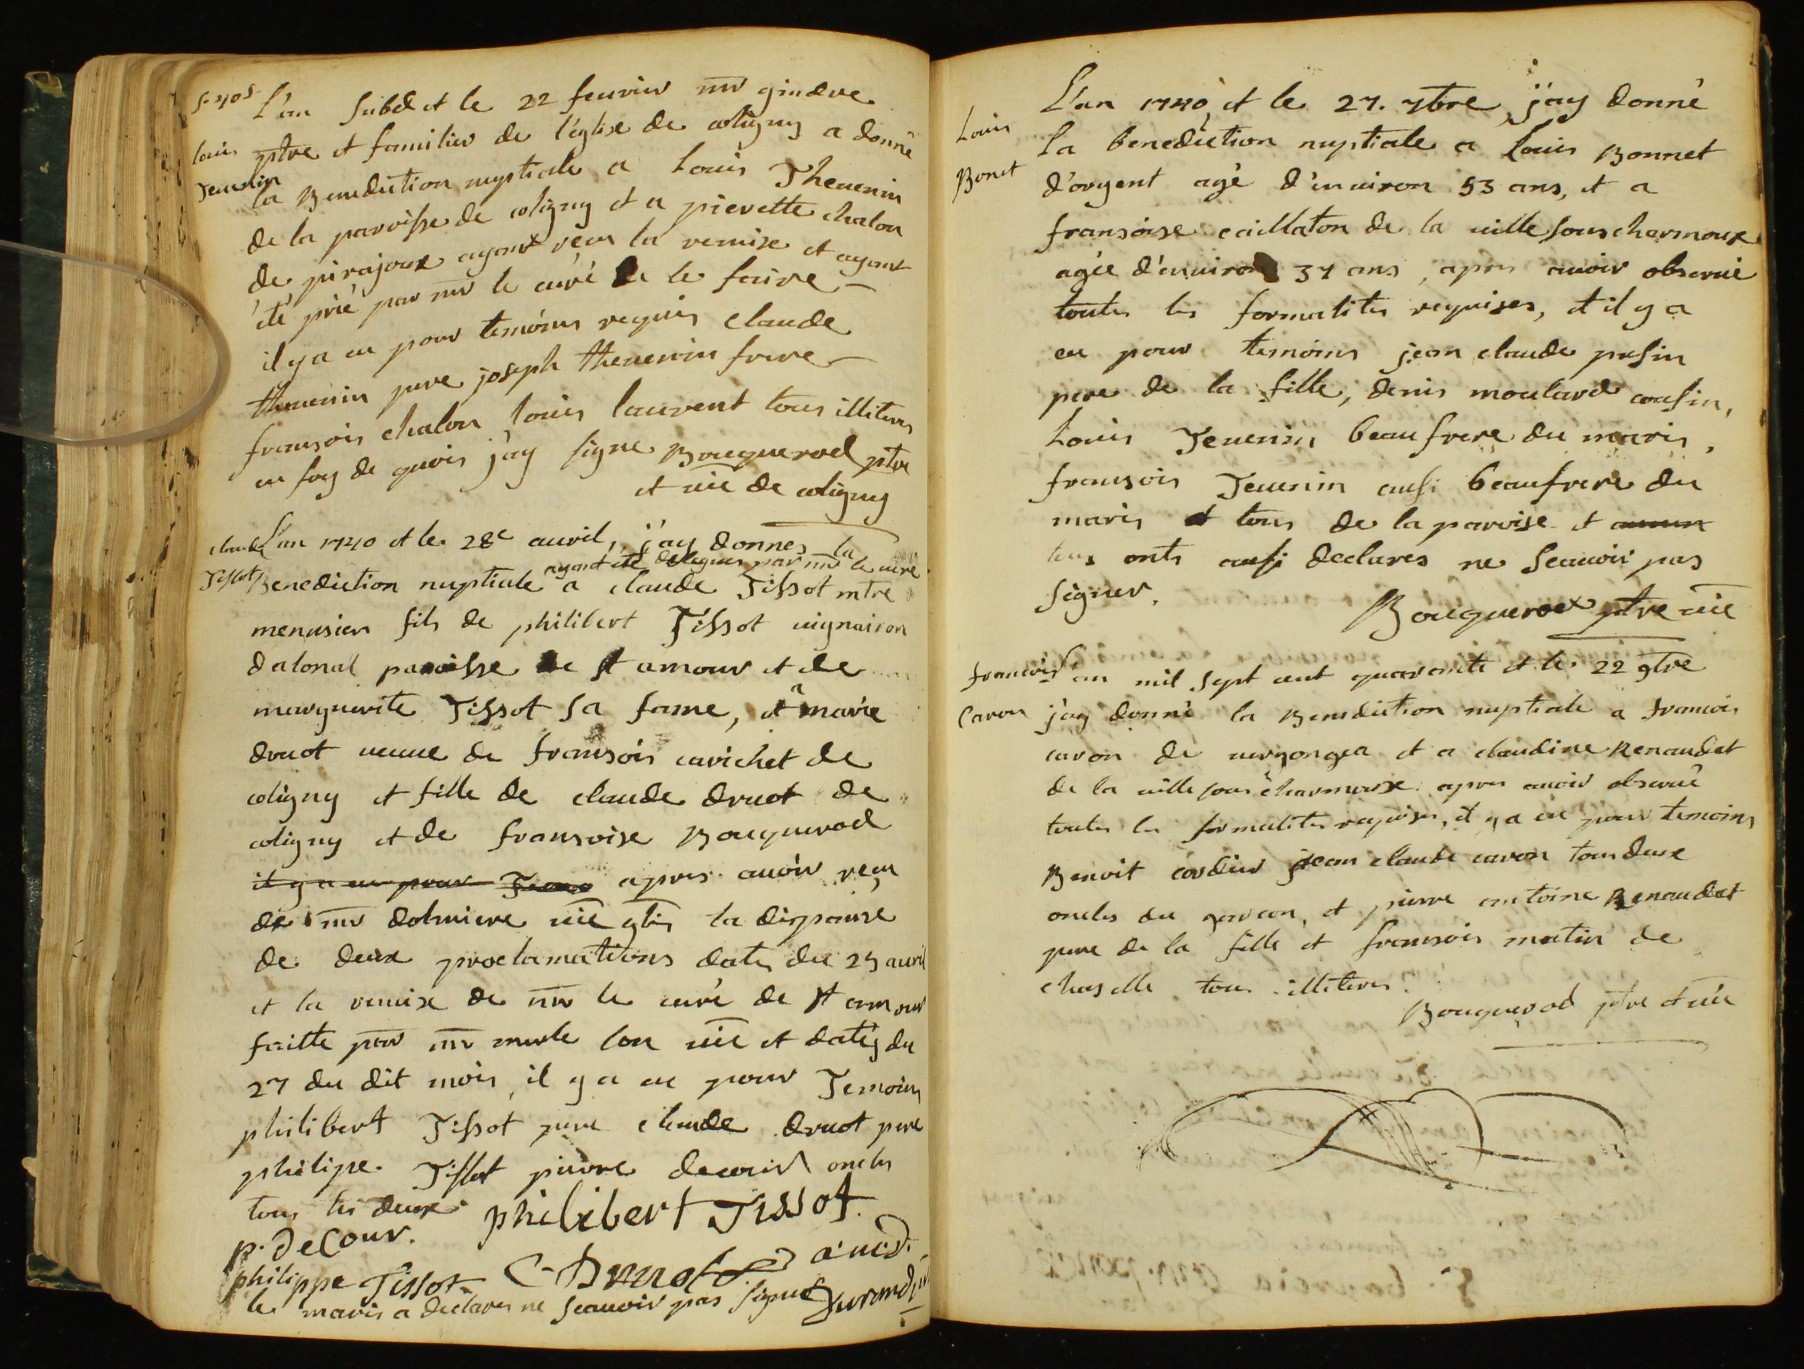 L'an susdt et le 22 feuvrier mr gindre
louis
ptre et familier de l'eglise de coligny a donné
Teuenin
la Benediction nuptiale a Louis Theuenin
de la paroisse de coligny et a pierrette chalon
de pirajoux ayant reçu la remise et ayant
été prié par mr le curé de le faire
il y a eu pour temoins requis claude
theuenin pere joseph theuenin frere
fransois chalon louis laurent tous illiteres
en foy de quois j'ay signe Bouquerod ptre
et uic de coligny
claude
Tissot
L'an 1740 et le 28e auril, j'ay donnes la
ayant été par mr le curé
Benediction nuptiale a claude Tissot mtre
menusier fils de philibert Tissot uigneiron
dalonal paroisse de st amour et de
marguerite Tissot sa fame, et a marie
druot ueuue de fransois curichet de
coligny et fille de claude druot de
coligny et de fransoise Bouquerod
il y a eu pour Temo apres auoir reçu
de mr uic la dispanse
de deux proclamations dates du 25 auril
et la remise de mr le curé de st amour
faitte par mr son uic et datés du
27 du dit mois, il y a eu pour Temoins
philibert Tissot pere claude druot pere
philipe Tissot pierre decour oncles
tous les deux
philibert Tissot
p. deCour.
philippe Tissot C Druot
le maris a declares ne scauoir pas signer
Louis
Bonet
L'an 1740 et le 27. 7bre j'ay donné
la benediction nuptiale a Louis Bonnet
d'orgent agé d'enuiron 53 ans, et a
fransoise caillaton de la uille sous charmoux
agée d'enuiron 37 ans, apres auoir obserué
toutes les formalites requises, et il y a
eu pour temoins jean claude
pere de la fille, denis moulard cousin,
Louis Teuenin beaufrere du maris,
fransois Teuenin aussi beaufrere du
maris et tous de la paroise et
tous onts aussi declares ne scauoir pas
signer.
Bouquerod ptre uic
francois
caron
L'an mil sept cent quarante et le 22 9bre
j'ay donné la Benediction nuptiale a francois
caron de uergongea et a claudine Renaudet
de la uille sous charmoux apres auoir obserué
toutes les formalites requises, et y a eu pour temoins
Benoit cordier jean claude caron tous deux
oncles du garcon, et pierre antoine Renaudet
pere de la fille et fransois matin de
chaselle tous illiteres.
Bouquerod ptre et uic